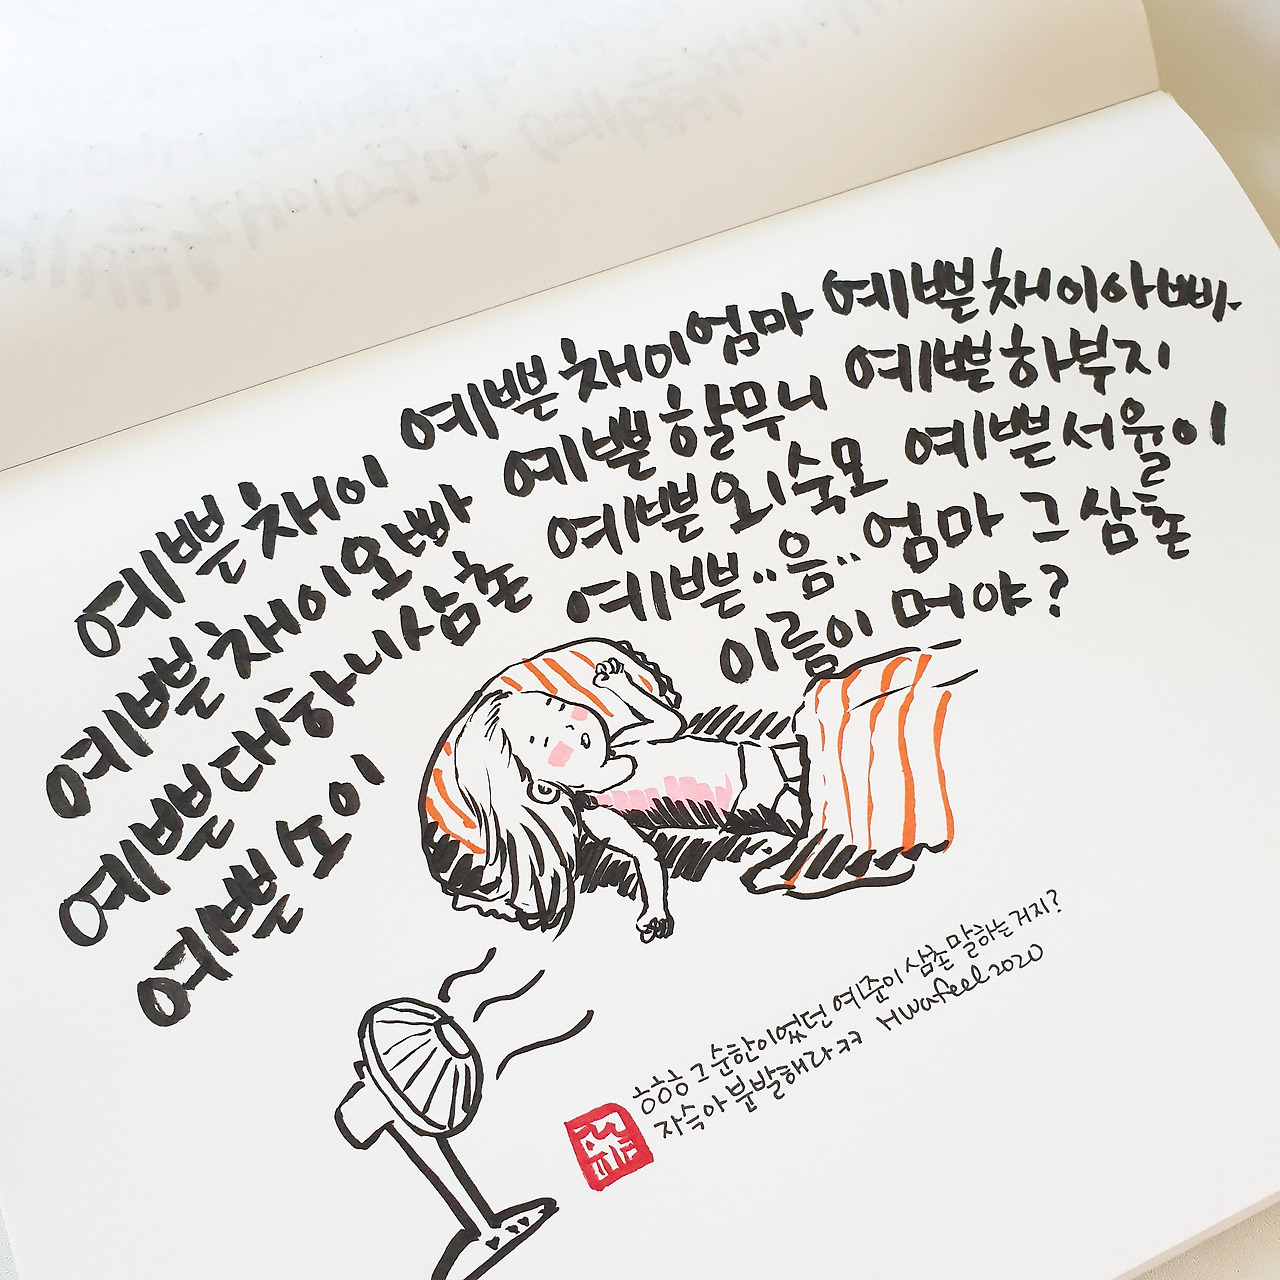 예쁜채이 예쁜채이엄마 예쁜채이아빠
예쁜채이오빠 예쁜할무니 예쁜하부지
예쁜대하니삼촌 예쁜외숙모 예쁜서율이
예쁜소이 예쁜..음..엄마 그 삼촌
이름이 머야?
ㅎㅎㅎ 그 순한이었던 예준이 삼촌 말하는거지?
자슥아 분발해라ㅋㅋ Hwafeel2020